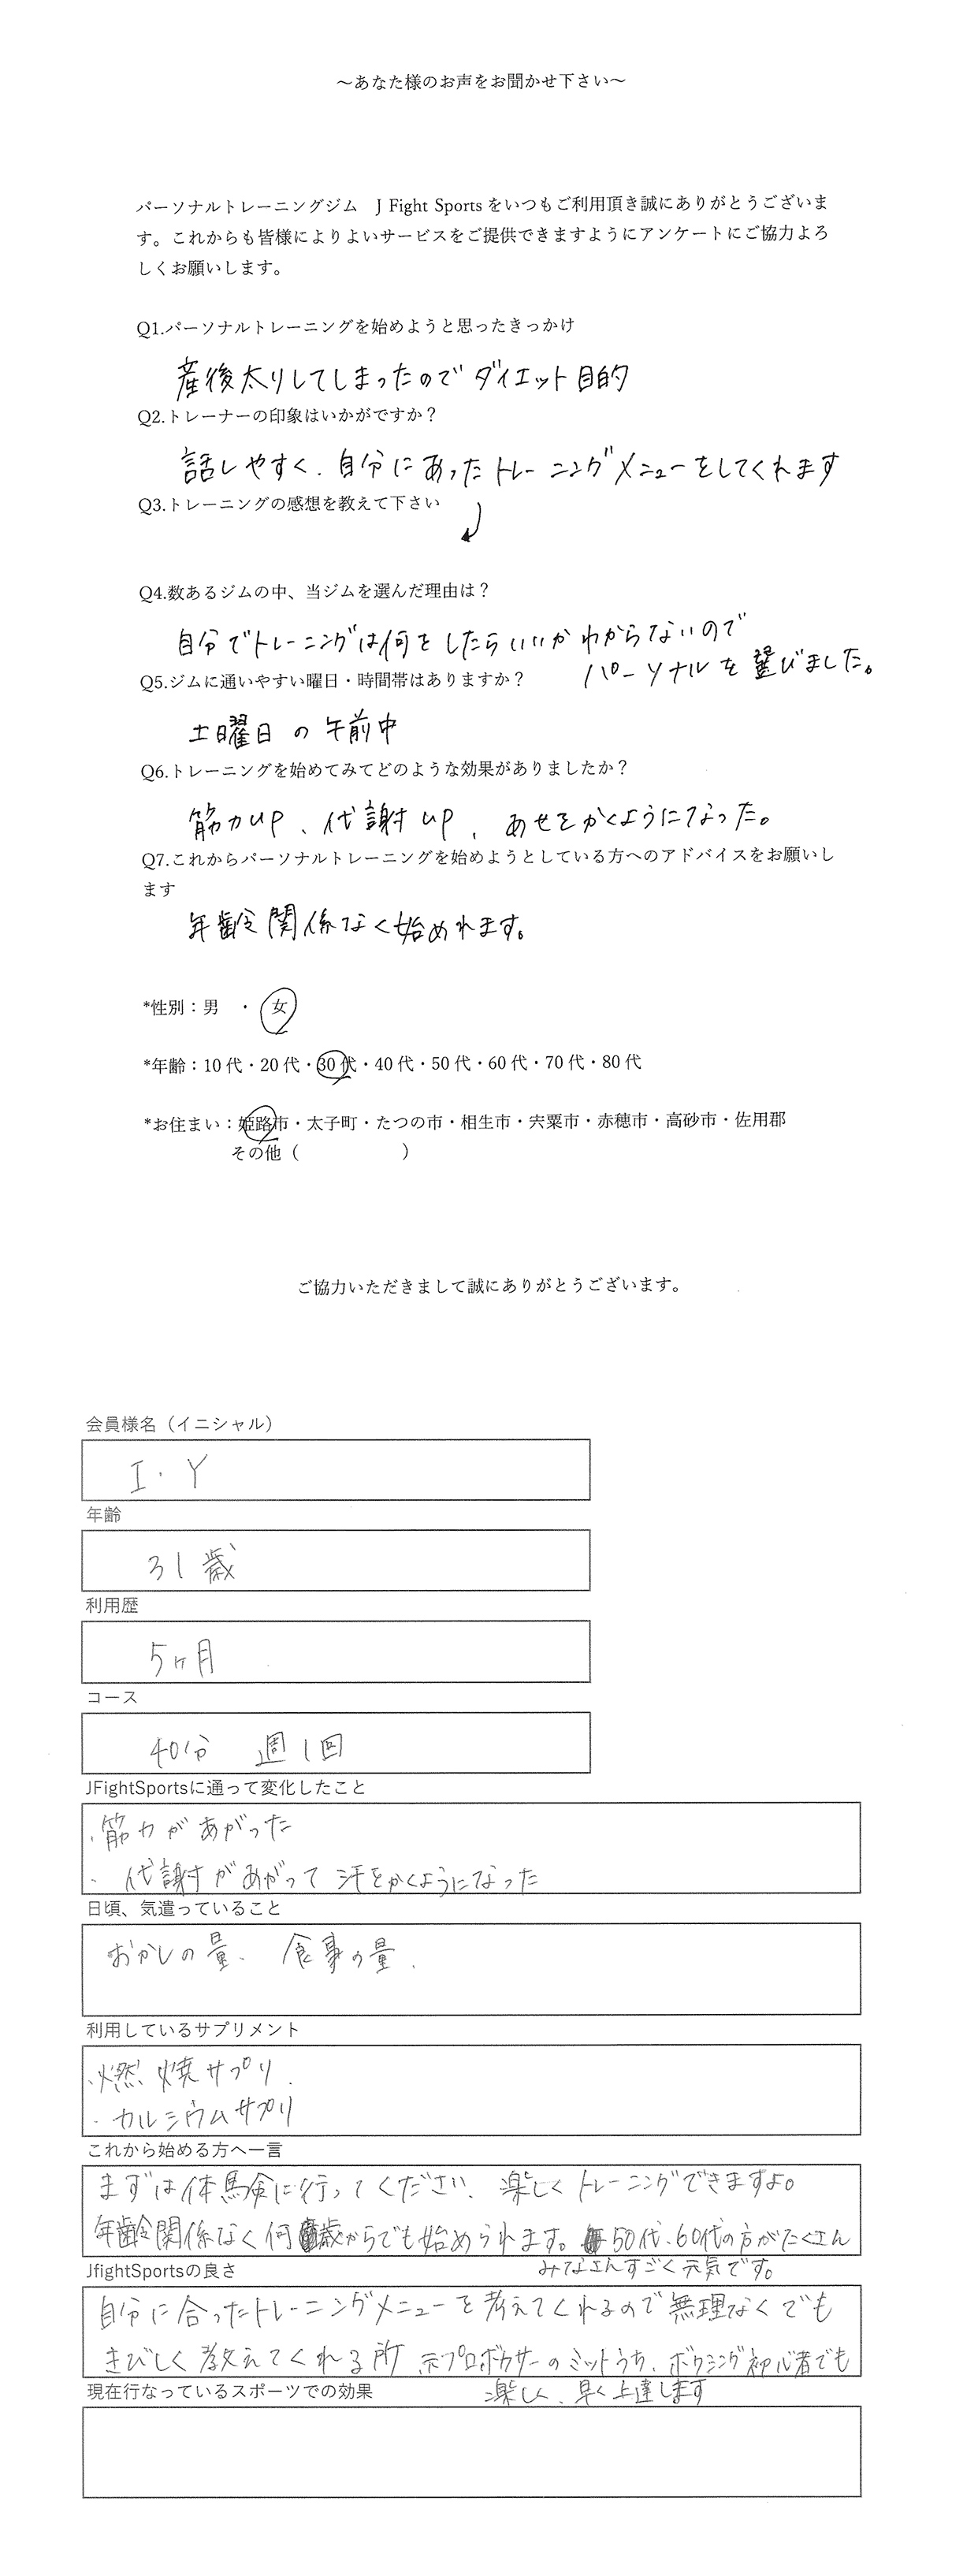 ～あなた様のお声をお聞かせ下さい～
パーソナルトレーニングジム　J Fight Sports をいつもご利用頂き誠にありがとうございま
す。これからも皆様によりよいサービスをご提供できますようにアンケートにご協力よろ
しくお願いします。
Q1.パーソナルトレーニングを始めようと思ったきっかけ
産後太りしてしまったのでダイエット目的
Q2.トレーナーの印象はいかがですか？
話しやすく、自分にあったトレーニングメニューをしてくれます
Q3.トレーニングの感想を教えて下さい
Q4.数あるジムの中、当ジムを選んだ理由は？
自分でトレーニングは何をしたらいいかわからないので
パーソナルを選びました。
Q5.ジムに通いやすい曜日・時間帯はありますか？
土曜日の午前中
Q6.トレーニングを始めてみてどのような効果がありましたか？
筋力UP、代謝UP、あせをかくようになった。
Q7.これからパーソナルトレーニングを始めようとしている方へのアドバイスをお願いし
ます
年齢関係なく始めれます。
*性別：男　・　女
*年齢：10代・20代・30代・40代・50代・60代・70代・80代
*お住まい：姫路市・太子町・たつの市・相生市・宍粟市・赤穂市・高砂市・佐用郡
その他（　　　　　　）
ご協力いただきまして誠にありがとうございます。
会員様名（イニシャル）
I・Y
年齢
31歳
利用歴
5ヶ月
コース
40分　週1回
JFightSportsに通って変化したこと
・筋力があがった
・代謝があがって汗をかくようになった
日頃、気遣っていること
おかしの量、食事の量．
利用しているサプリメント
・燃焼サプリ
・カルシウムサプリ
これから始める方へ一言
まずは体験に行ってください、楽しくトレーニングできますよ。
年齢関係なく何歳からでも始められます。50代、60代の方がたくさん
みなさんすごく元気です。
JfightSportsの良さ
自分に合ったトレーニングメニューを考えてくれるので無理なくでも
きびしく教えてくれる所 元プロボクサーのミットうち、ボクシング初心者でも
楽しく、早く上達します
現在行なっているスポーツでの効果